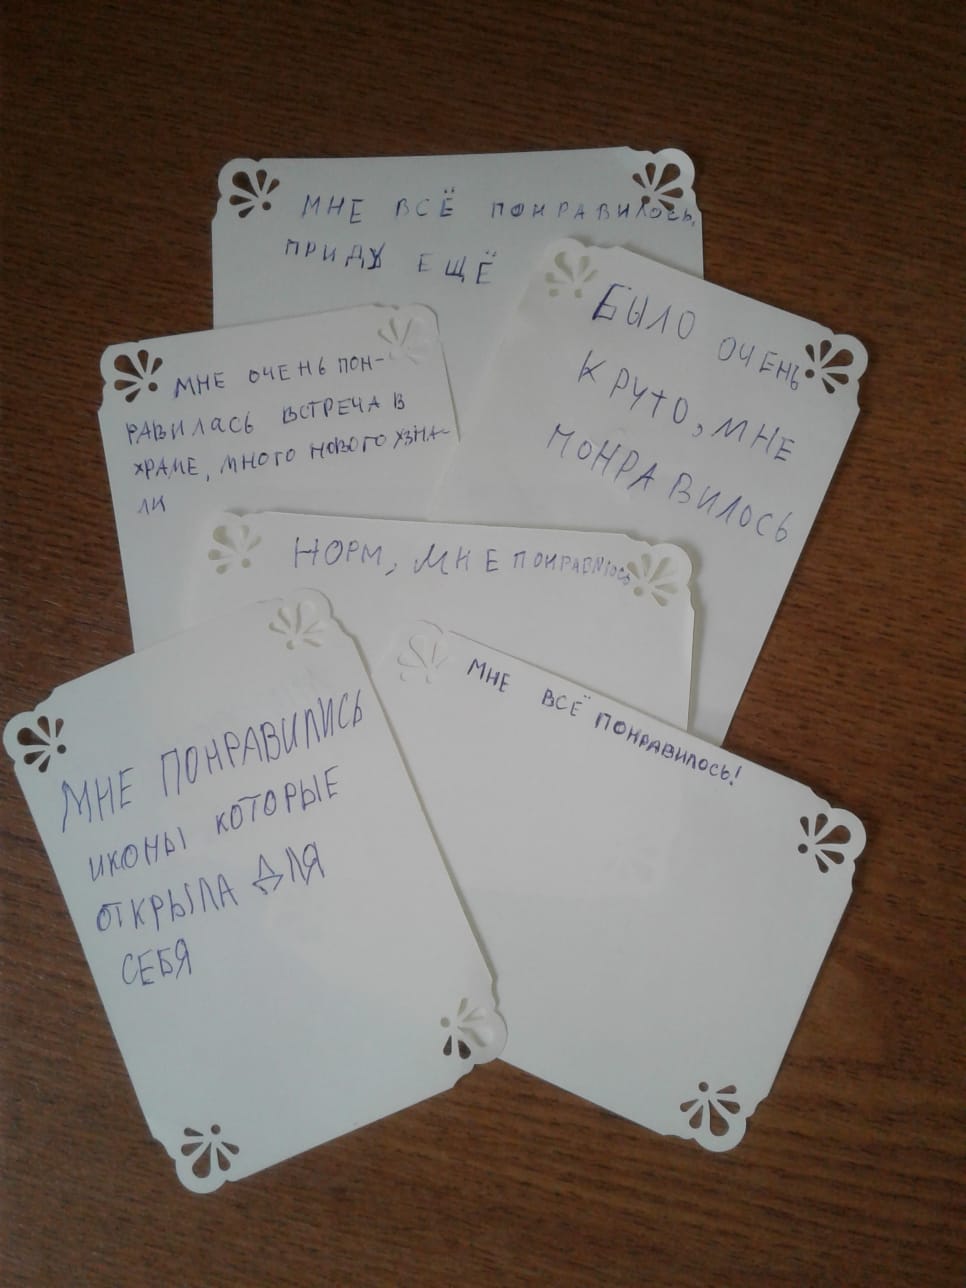 МНЕ ВСЁ ПОНРАВИЛОСЬ,
ПРИДУ ЕЩЁ
БЫЛО ОЧЕНЬ
КРУТО, МНЕ
ПОНРАВИЛОСЬ
МНЕ ОЧЕНЬ ПОН-
РАВИЛАСЬ ВСТРЕЧА В
ХРАМЕ, МНОГО НОВОГО УЗНА-
ЛИ
НОРМ, МНЕ ПОНРАВИЛОСЬ
МНЕ ВСЁ ПОНРАВИЛОСЬ!
МНЕ ПОНРАВИЛИСЬ
ИКОНЫ КОТОРЫЕ
ОТКРЫЛА ДЛЯ
СЕБЯ